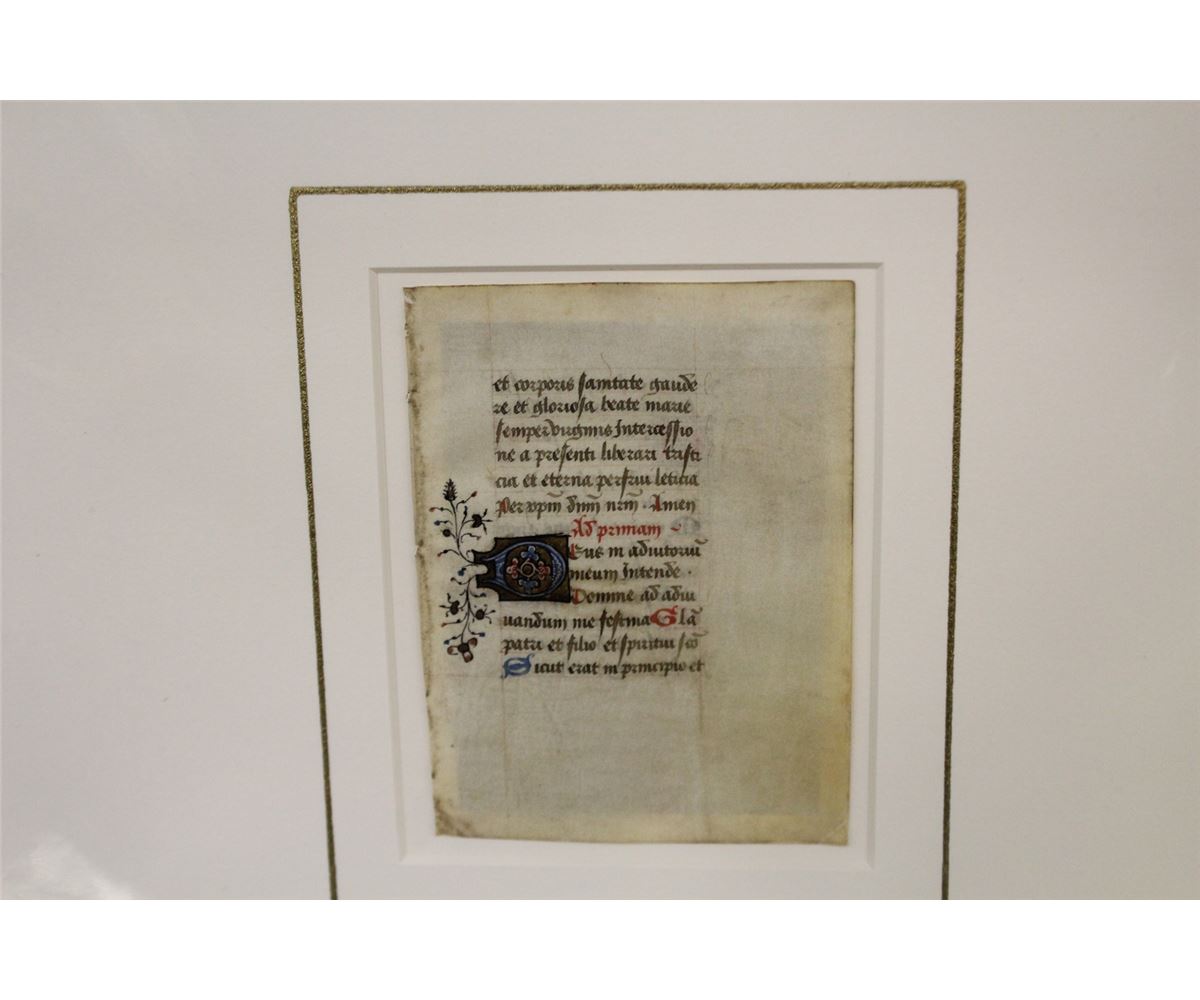 et corporis sanitate gaude
re et gloriosa beate marie
semper virginis Intercessio
ne a presenti liberari tristi
cia et eterna perfrui leticia
Per xpm̄ dnm̄ nrm̄ Amen
Ad primam
Deus in adiutoriū
meum Intende ·
Domine ad adiu
uandum me festina Glā
patri et filio et spiritui scō
Sicut erat in principio et